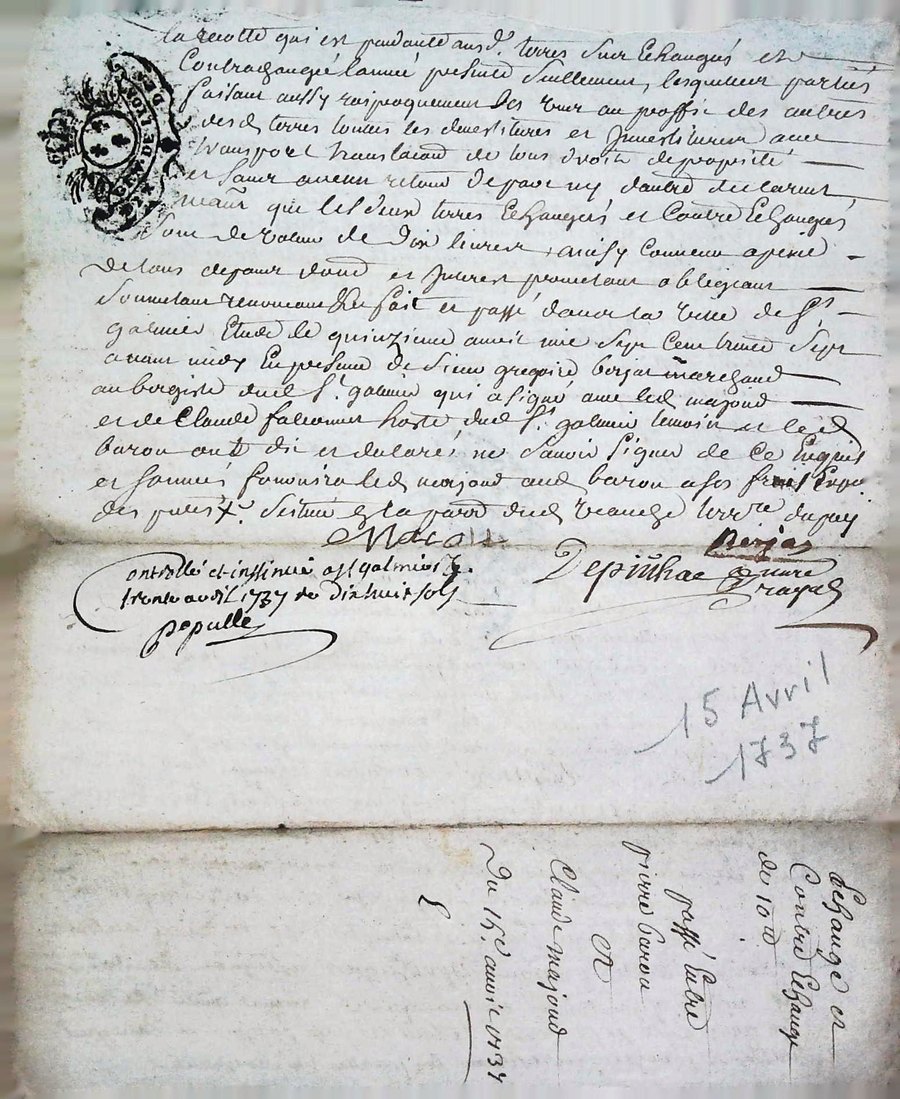 la recolte qui est pendante aus d. terres sur Echangés et
Contrachangée lannée presente seullement, lesquelles parties
faisant aussy reciproquement les unes au proffit des autres
des d. terres toutes les devestitures et Investitures avec
transport translation de tous droits de proprieté
et sans aucun retour de part ny d'autre declarent
neanm que les deux terres Echangés et Contre Echangés
sont de valeur de dix livres ainsy convenu a peine
de tous depans
Soumetant renonceant &c fait et passé dans la ville de St
galmier Etude le quinzieme avril mil sept Cent trente sept
avant midy En presence de Sieur gregoire berjat marchand
aubergiste dud St. galmier qui a signé avec led majond
et de Claude hoste dud St. galmier temoin et led
baron ont dit et declaré ne savoir signer de ce Enquis
et sommés fournira led majond aud baron a ses frais Expe
des p
Berjat
Depinhac
notaire
royal
Controllé et insinué a St galmier le
trente avril 1737 re dixhuit sols
Pepulle
15 Avril
1737
GEN DE LYON
Echange et
Contre Echange
de 10 #
passé Entre
pierre baron
et
Claude majond
Du 15e avril 1737